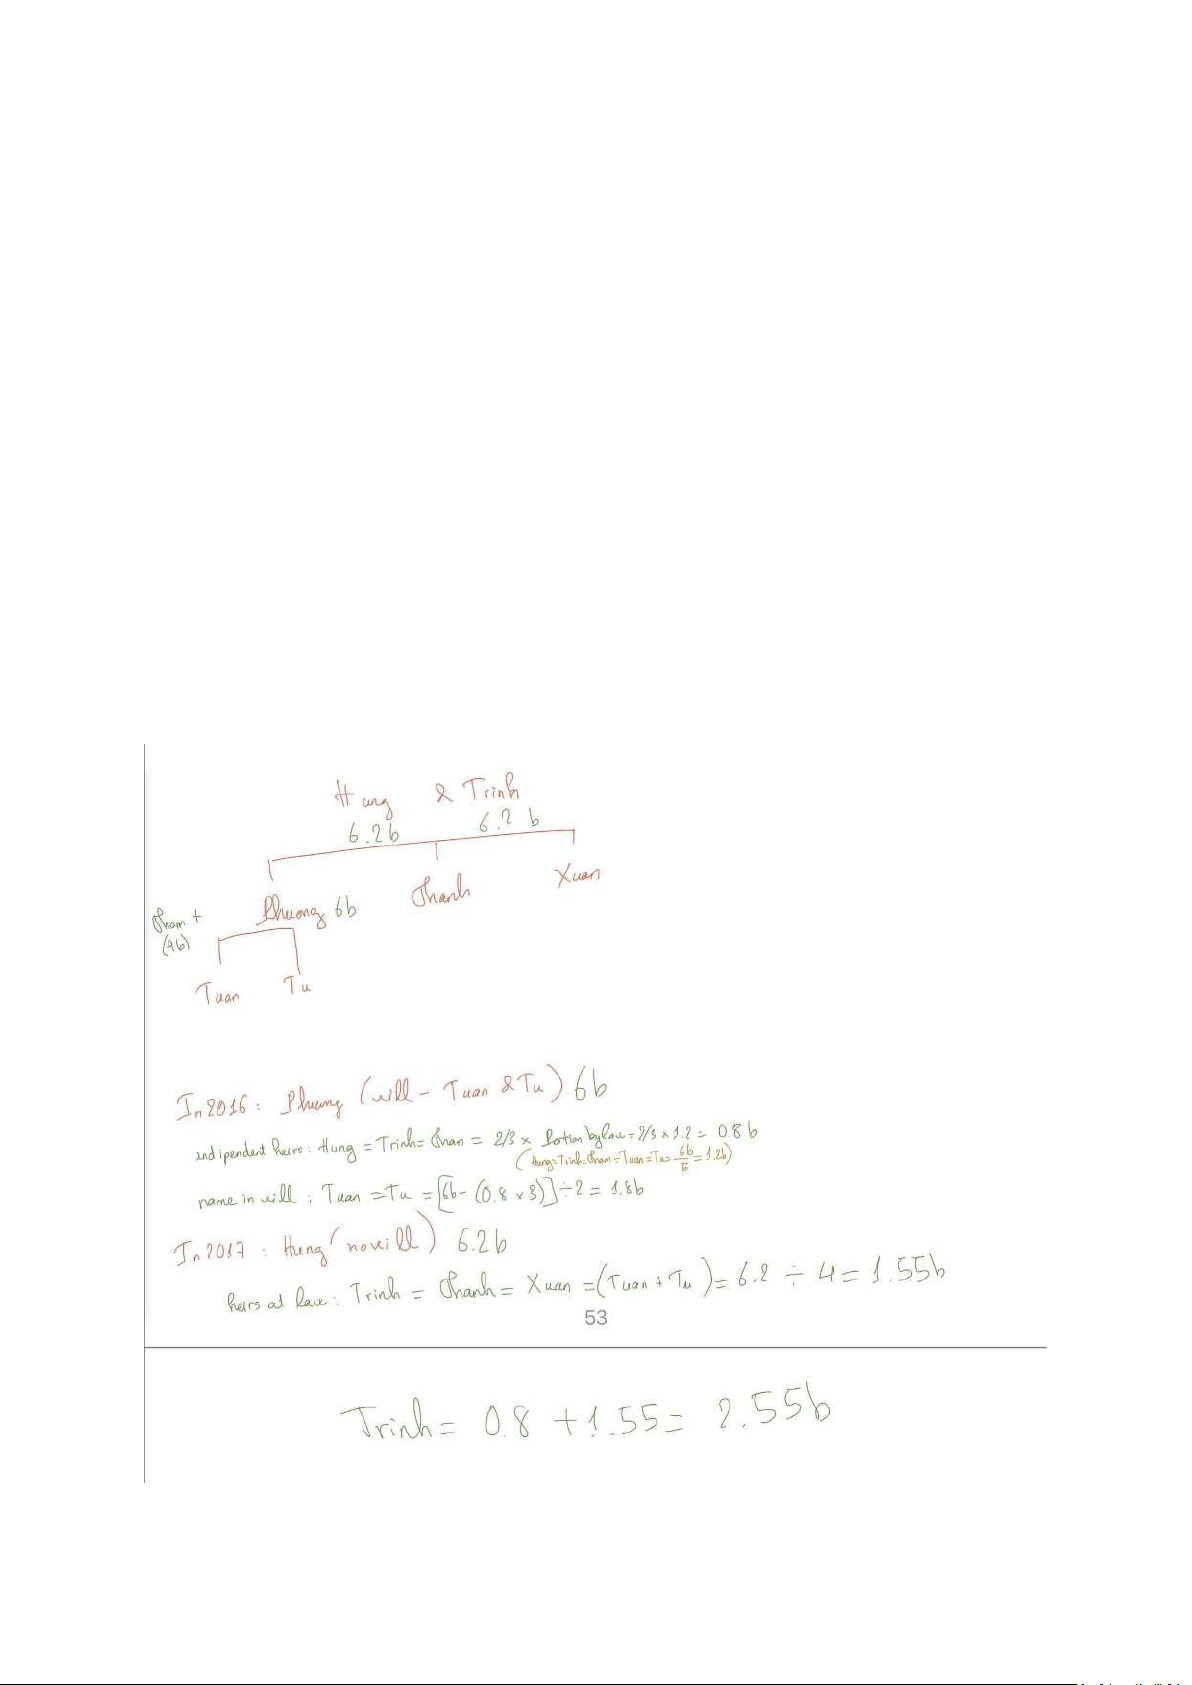 Hung & Trinh
6.2b 6.2 b
Phuong 6b Thanh Xuan
Tham +
(4b)
Tuan Tu
In 2016: Phuong (will - Tuan & Tu) 6b
indipendent heirs: Hung = Trinh = Than = 2/3 x Portion by law = 2/3 x 1.2 = 0.8 b
(Hung = Trinh = Tham = Tuan = Tu = 6b/5 = 1.2b)
name in will : Tuan = Tu = [6b - (0.8 x 3)] ÷ 2 = 1.8b
In 2017 : Hung (no will) 6.2b
heirs at law : Trinh = Thanh = Xuan = (Tuan + Tu) = 6.2 ÷ 4 = 1.55b
53
Trinh = 0.8 + 1.55 = 2.55b